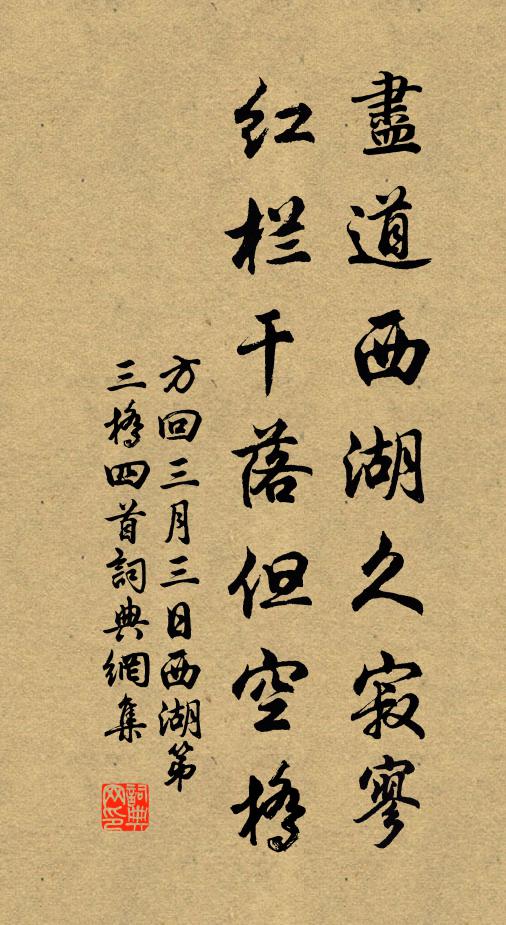 盡道西湖久寂寥
紅栏干落但空橋
方回三月三日西湖第
三橋四首詞典網集
詞典网印